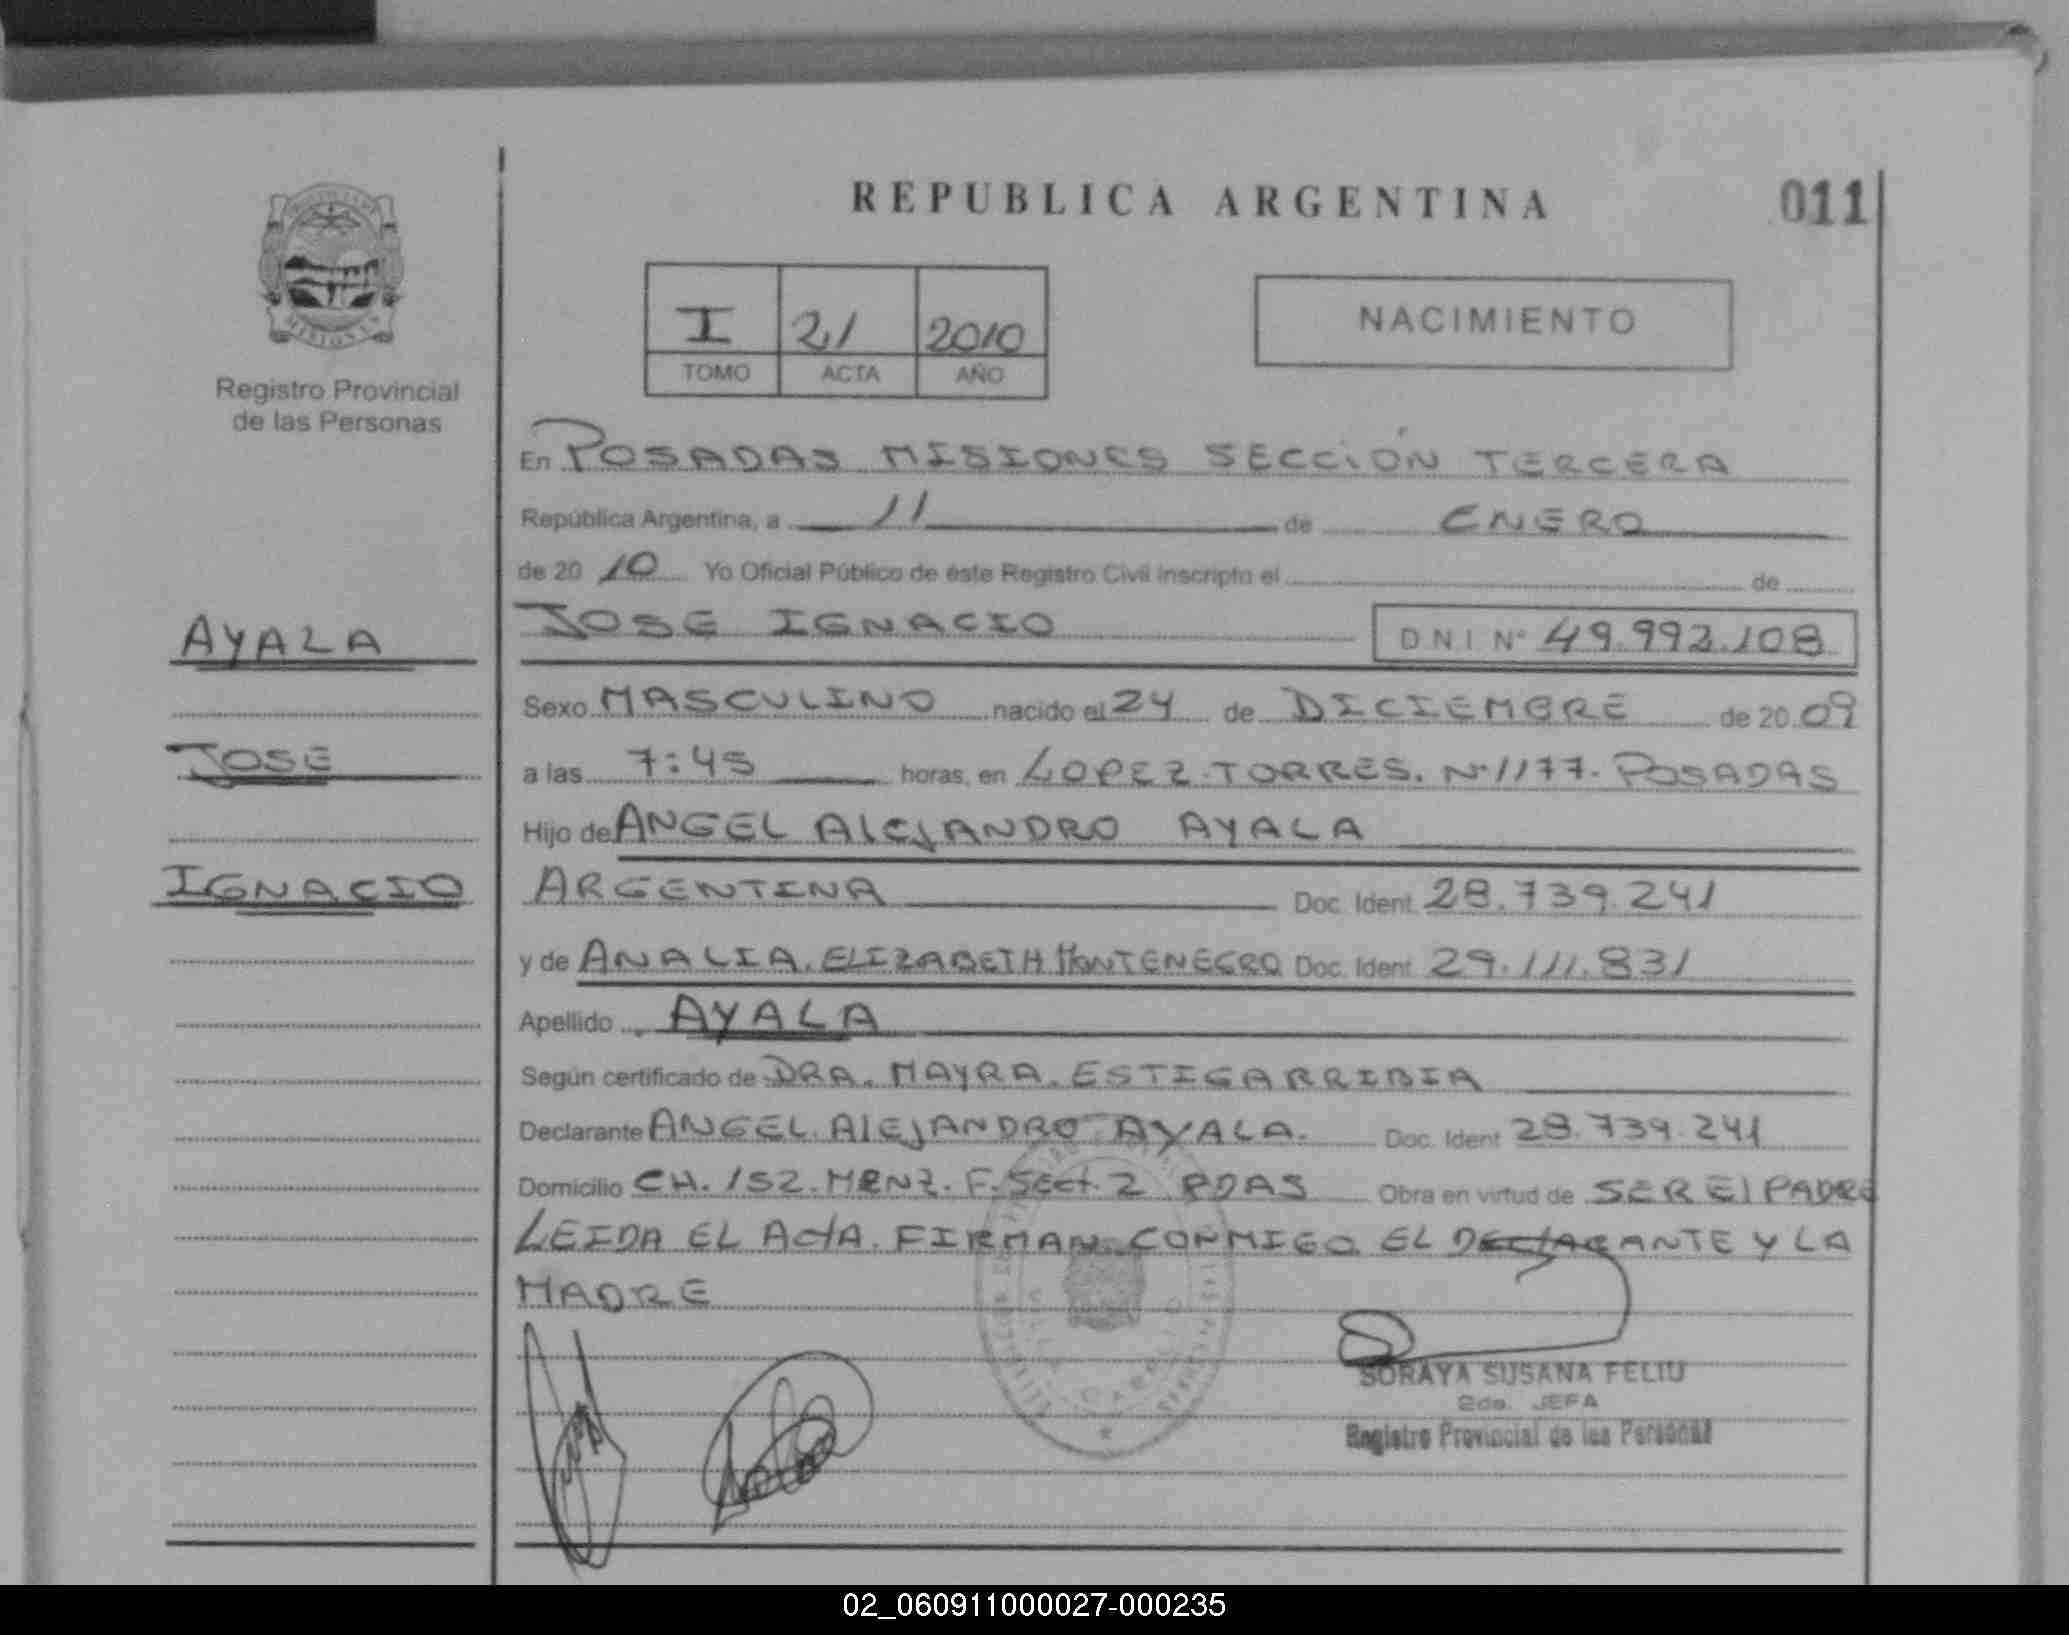 REPUBLICA ARGENTINA
011
MISIONES
Registro Provincial
de las Personas
I 21 2010
TOMO ACTA AÑO
NACIMIENTO
En POSADAS MISIONES SECCIÓN TERCERA
República Argentina, a 11 de ENERO
de 20 10 Yo Oficial Público de éste Registro Civil inscripto el de
JOSE IGNACIO D N I Nº 49.992.108
Sexo MASCULINO nacido el 24 de DICIEMBRE de 20 09
a las 7:45 horas, en LOPEZ TORRES. Nº 1177. POSADAS
Hijo de ANGEL AlEJANDRO AYALA
ARGENTINA Doc. Ident. 28.739.241
y de ANALIA. ELIZABETH MONTENEGRO Doc. Ident. 29.111.831
Apellido AYALA
Según certificado de DRA. MAYRA. ESTIGARRIBIA
Declarante ANGEL. AlEJANDRO AYALA. Doc. Ident 28.739.241
Domicilio CH. 152. MANZ. F. Sect. 2 PDAS Obra en virtud de SER El PADRE
LEIDA EL ActA. FIRMAN CONMIGO EL DEClARANTE Y LA
MADRE
AYALA
JOSE
IGNACIO
SORAYA SUSANA FELIU
2da. JEFA
Registro Provincial de las Personas
02_060911000027-000235